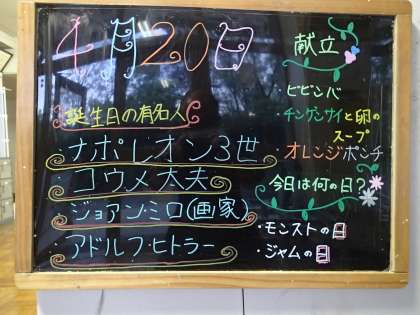 4月20日
誕生日の有名人
・ナポレオン3世
・コウメ太夫
・ジョアン・ミロ(画家)
・アドルフ・ヒトラー
献立
・ビビンバ
・チンゲンサイと卵の
スープ
・オレンジポンチ
今日は何の日?
・モンストの日
・ジャムの日